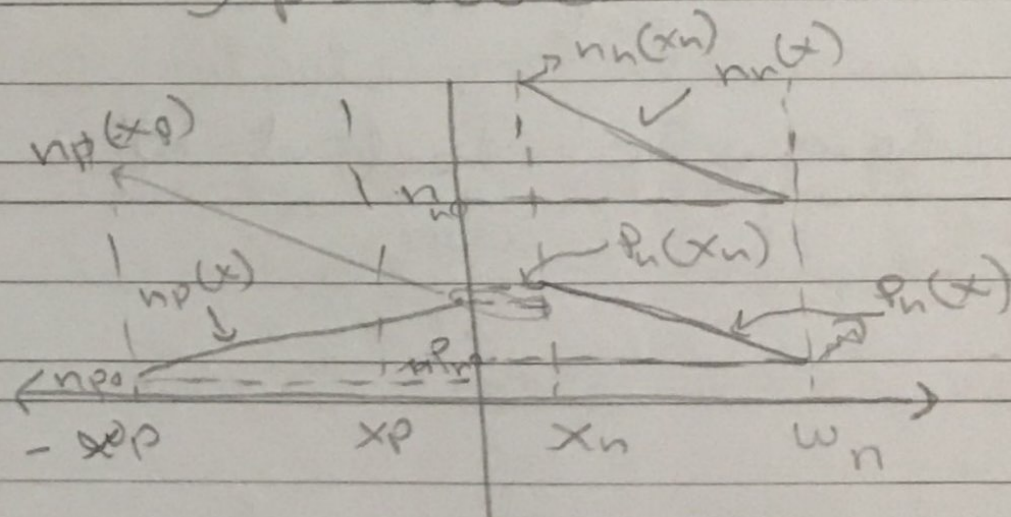 nₙ(xₙ)
nₙ(x)
nₚ(xₚ)
nₙ
Pₙ(xₙ)
nₚ(x)
Pₙ(x)
nₚ₀
xₚ
xₙ
wₙ